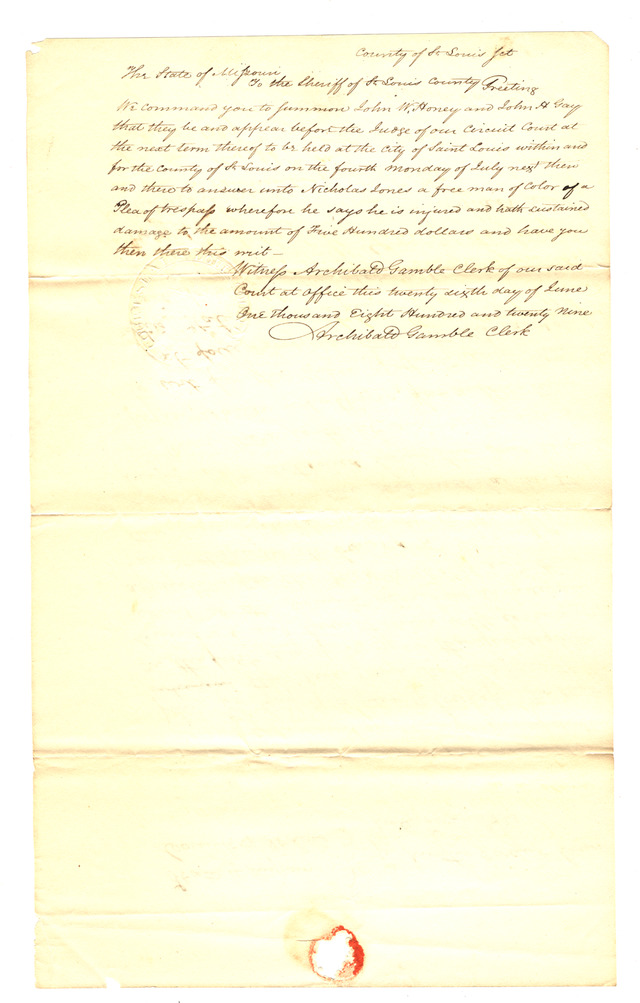 County of St Louis Sct
The State of Missouri
To the Sheriff of St Louis County Greeting
We command you to summon John W. Honey and John H Gay
that they be and appear before the Judge of our Circuit Court at
the next term thereof to be held at the City of Saint Louis within and
for the County of St Louis on the fourth Monday of July next then
and there to answer unto Nicholas Jones a free man of Color of a
Plea of trespass wherefore he says he is injured and hath sustained
damage to the amount of Five Hundred dollars and have you
then there this writ —
Witness Archibald Gamble Clerk of our said
Court at office this twenty sixth day of June
One thousand Eight Hundred and twenty Nine
Archibald Gamble Clerk